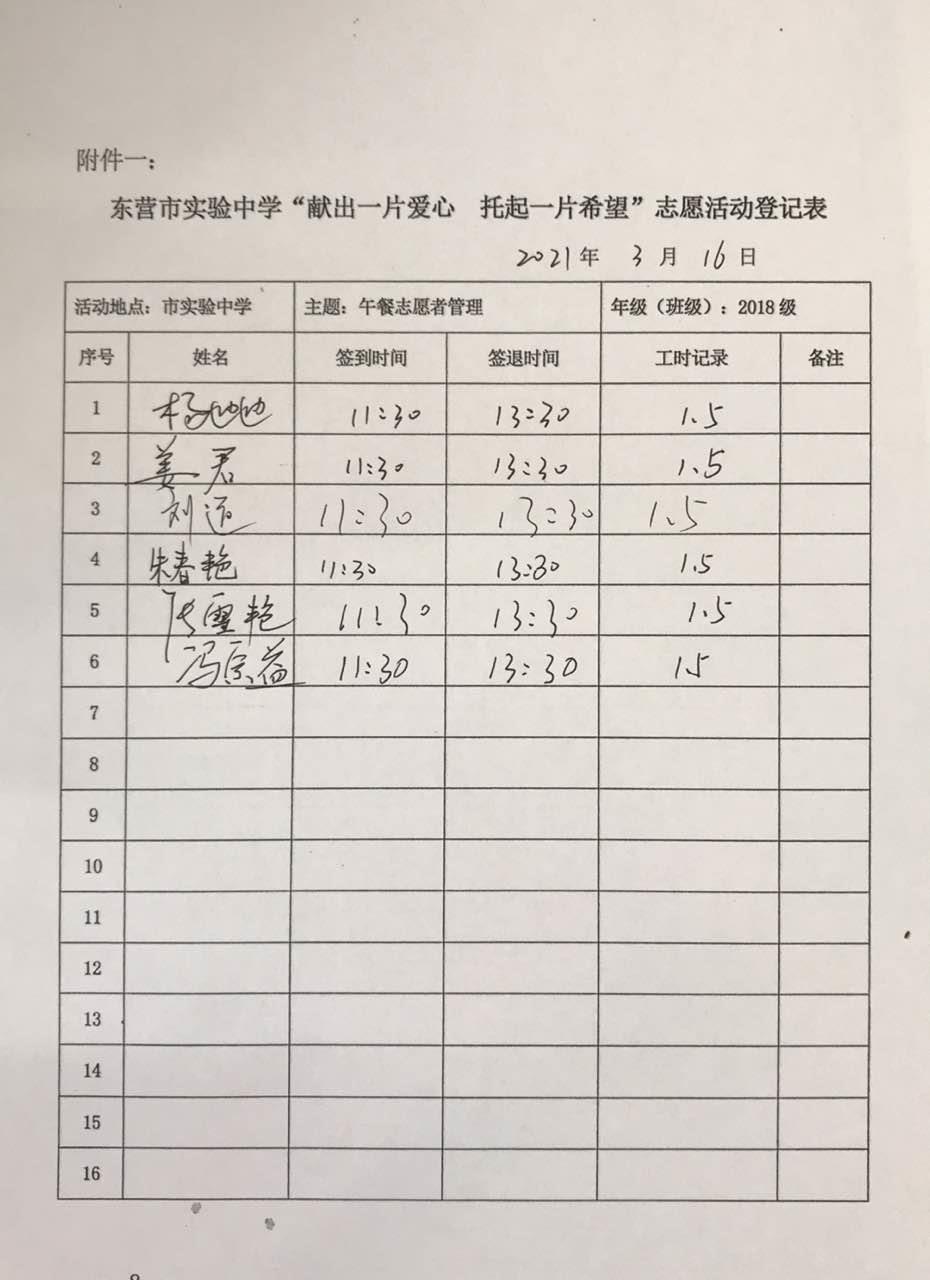 附件一：
东营市实验中学“献出一片爱心 托起一片希望”志愿活动登记表
2021年 3月 16日
活动地点：市实验中学 主题：午餐志愿者管理 年级（班级）：2018级
序号 姓名 签到时间 签退时间 工时记录 备注
1 杨 11:30 13:30 1.5
2 姜君 11:30 13:30 1.5
3 刘 11:30 13:30 1.5
4 朱春艳 11:30 13:30 1.5
5 张雪艳 11:30 13:30 1.5
6 冯宗益 11:30 13:30 1.5
7
8
9
10
11
12
13
14
15
16